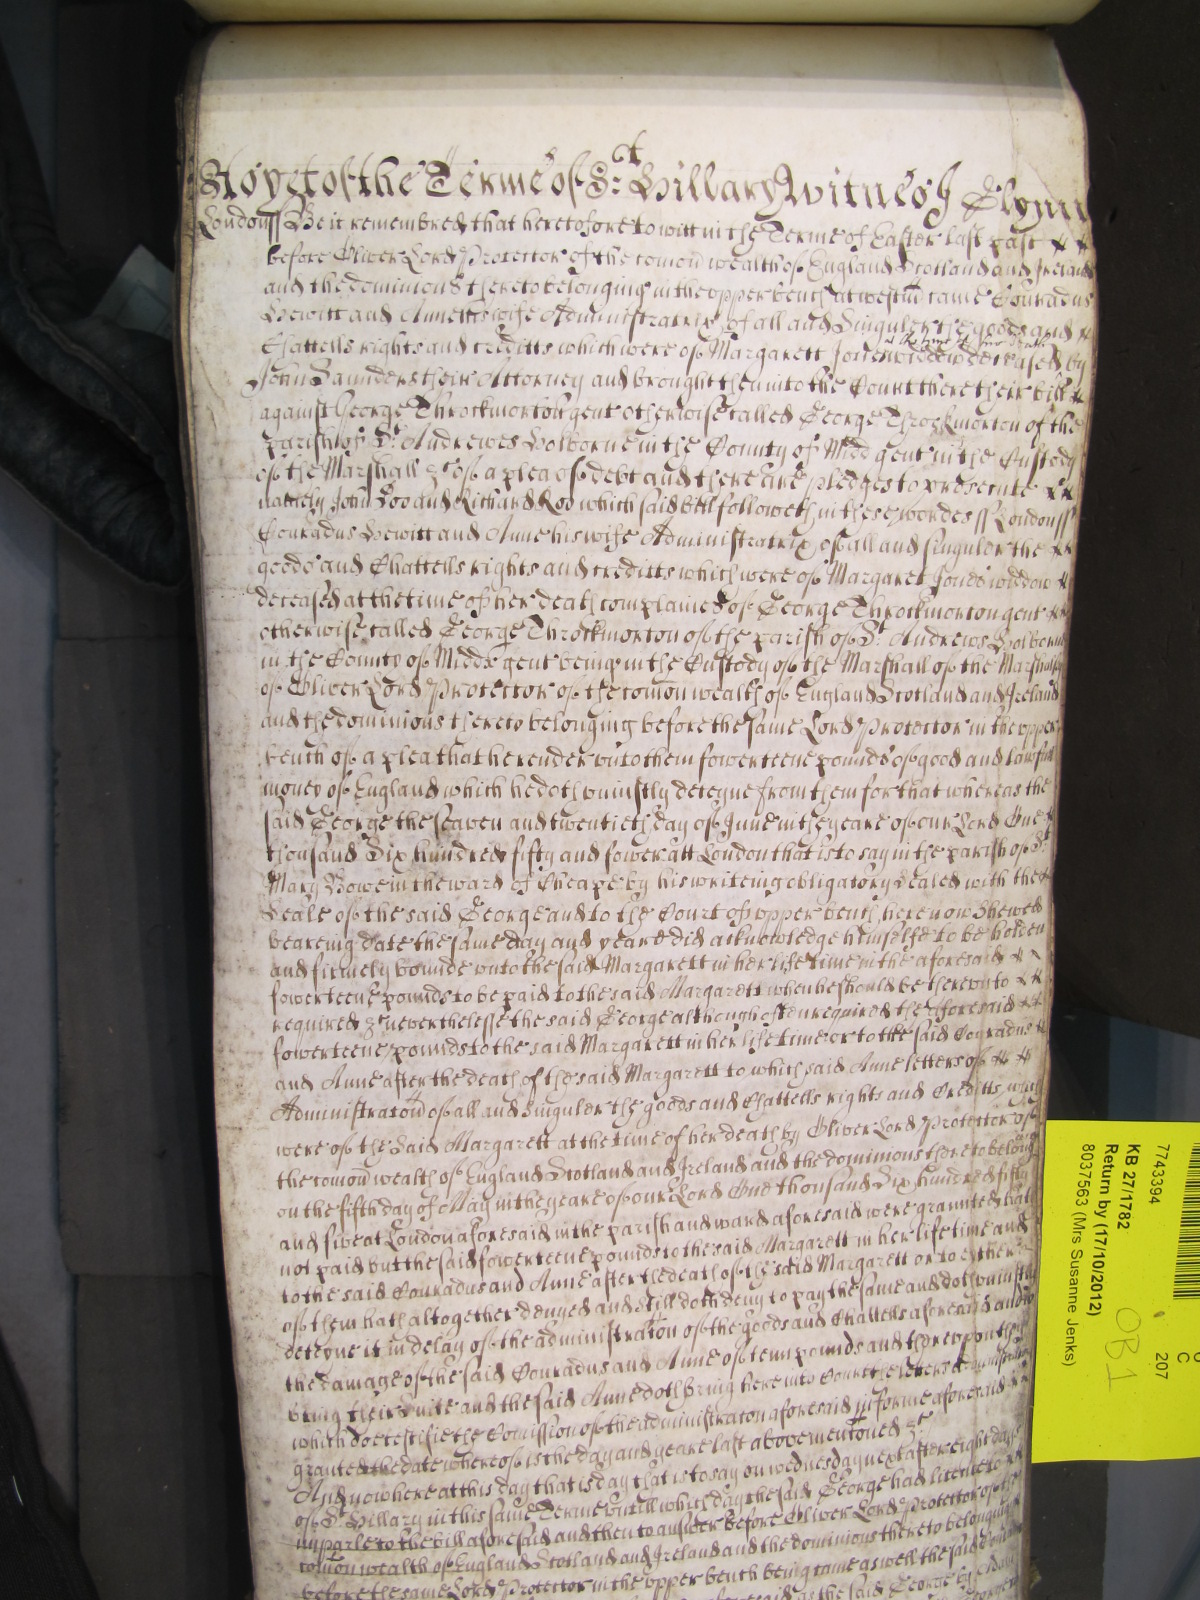 As yet of the Terme of St Hillary Witnesse Glynn
London ss Be it remembred that heretofore to witt in the Terme of Easter last past
before Oliver Lord Protector of the comon wealth of England Scotland and Ireland
and the dominions thereto belonging in the upper bench at westm came Conradus
Hewitt and Anne his wife Administratrix of all and Singuler the goods and
Chattells rights and creditts which were of Margarett Jones widdow deceased at the time of her death by
John Saunders their Attorney and brought then into the Court there their bill
against George Throckmorton gent otherwise called George Throckmorton of the
parish of St Andrewes Holborne in the County of Midd gent in the Custody
of the Marshall &c of a plea of debt and there are pledges to prosecute
namely John Doo and Richard Roo which said bill followeth in these wordes ss London ss
Conradus Hewitt and Anne his wife Administratrix of all and singuler the
goods and Chattells rights and creditts which were of Margarett Jones widdow
deceased at the time of her death complaines of George Throckmorton gent
otherwise called George Throckmorton of the parish of St Andrews Holborne
in the County of Midds gent being in the Custody of the Marshall of the Marshalsy
of Oliver Lord Protector of the comon wealth of England Scotland and Ireland
and the dominions thereto belonging before the same Lord Protector in the upper
bench of a plea that he render unto them fowerteene pounds of good and lawfull
money of England which he doth uniustly deteyne from them for that whereas the
said George the seaven and twentieth day of June in the yeare of our Lord One
thousand Six hundred fifty and fower att London that is to say in the parish of St
Mary Bowe in the ward of Cheape by his writeing obligatory sealed with the
Seale of the said George and to the Court of upper bench here now shewed
beareing date the same day and yeare did acknowledge himselfe to be holden
and firmely bounde unto the said Margarett in her life time in the aforesaid
fowerteene pounds to be paid to the said Margarett when he should be thereunto
required &c neverthelesse the said George although often required the aforesaid
fowerteene pounds to the said Margarett in her life time or to the said Conradus
and Anne after the death of the said Margarett to which said Anne letters of
Administraton of all and Singuler the goods and Chattells rights and Creditts which
were of the Said Margarett at the time of her death by Oliver Lord Protector of
the comon wealth of England Scotland and Ireland and the dominions thereto belonging
on the fifth day of May in the yeare of our Lord One thousand Six hundred fifty
and five at London aforesaid in the parish and ward aforesaid were graunted hath
not paid but the said fowerteene pounds to the said Margarett in her life time and
to the said Conradus and Anne after the death of the said Margarett or to eyther
of them hath altogether denyed and still doth deny to pay the same and doth uniustly
deteyne it in delay of the administraton of the goods and Chattells aforesaid and to
the damage of the said Conradus and Anne of tenn pounds and thereupon they
bring their suite and the said Anne doth bring here into Court the letters of administraton
which doe testifie the Comission of the administraton aforesaid in forme aforesaid
granted the date whereof is the day and yeare last abovementoned &c
And now here at this day that is day that is to say on wednesday next after eight dayes
of St Hillary in this same Terme untill which day the said George had licence to
imparle to the bill aforesaid and then to answer before Oliver Lord Protector of the
comon wealth of England Scotland and Ireland and the dominions thereto belonging
before the same Lord Protector in the upper bench being came as well the said Conradus
as the said George by
7743394
207
C
KB 27/1782
Return by (17/10/2012)
8037563 (Mrs Susanne Jenks)
OB 1